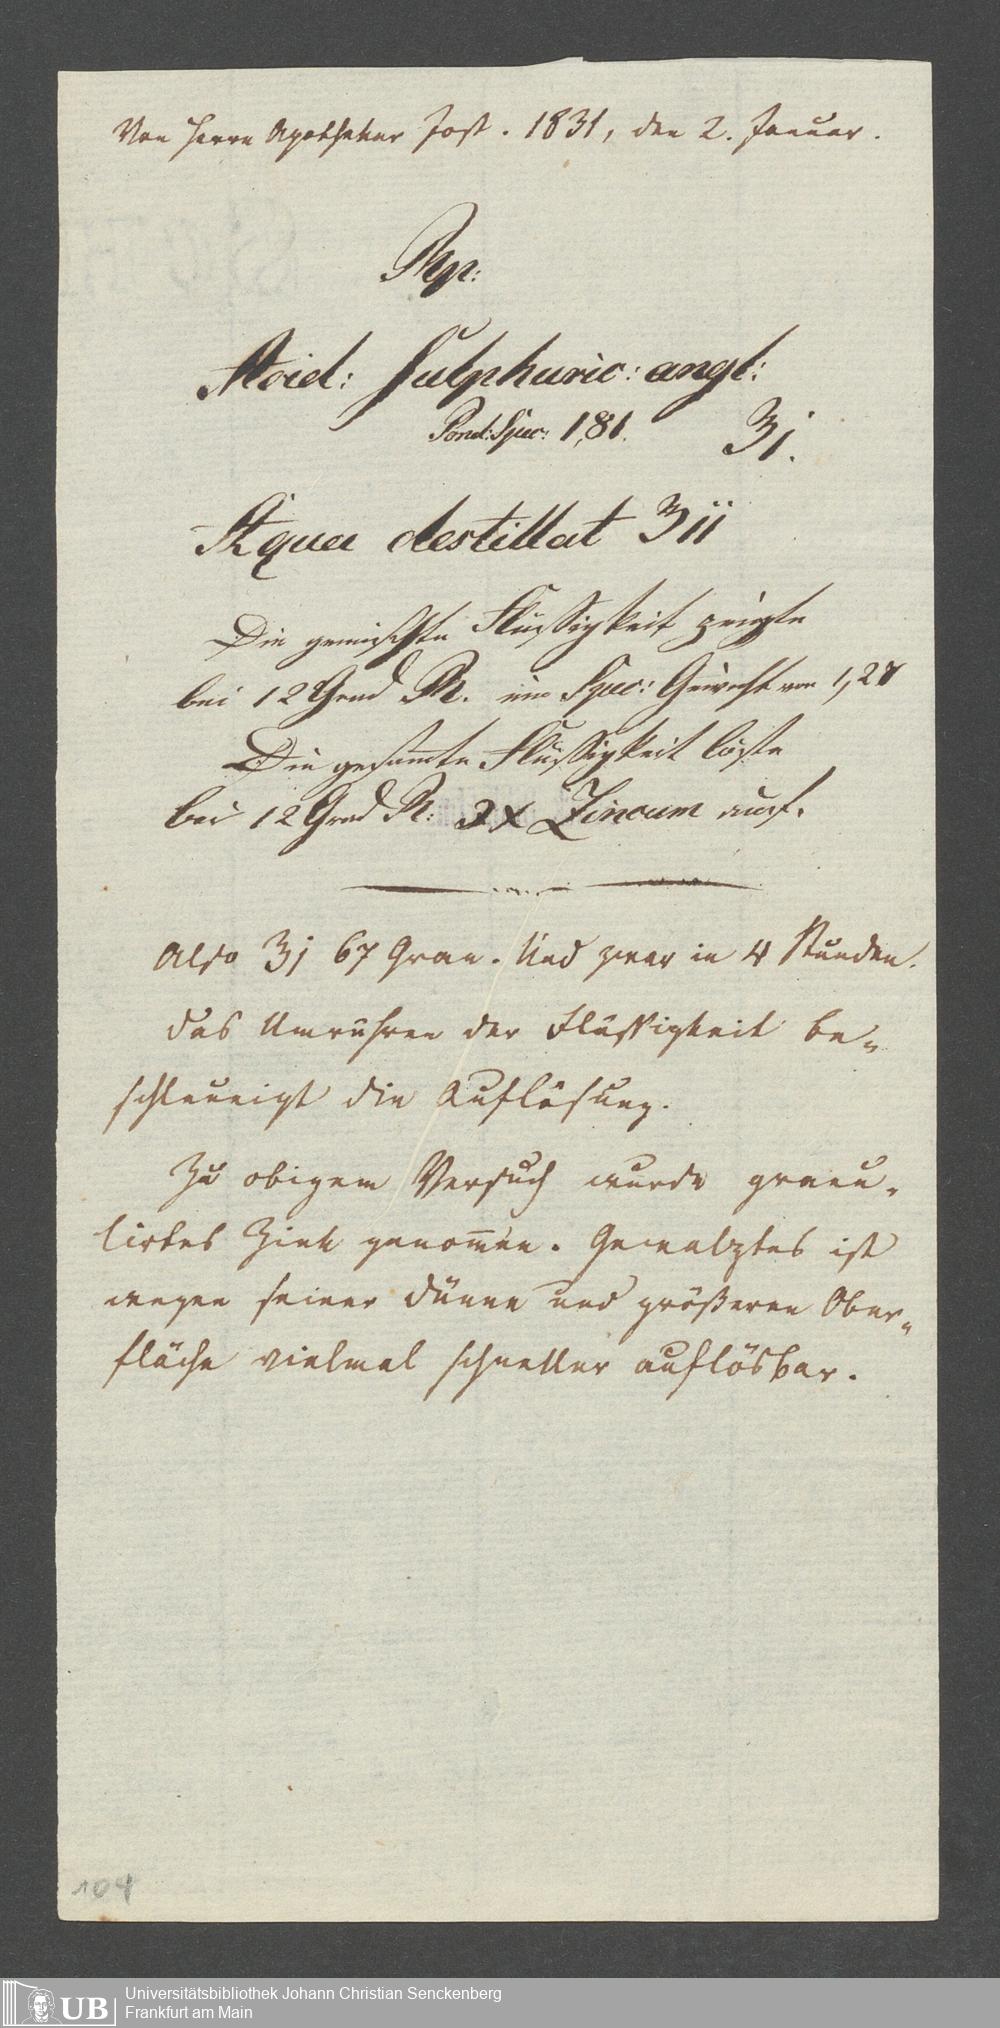 Von Herrn Apotheker Jost. 1831, den 2. Januar.
Rp:
Acid: Sulphuric: angl:
Pond: Spec: 1,81. ʒj.
Aqua destillat ʒii
Die gemischte Flüssigkeit zeigte
bei 12 Grad R. ein Spec: Gewicht von 1,27
Die gesam̅te Flüssigkeit löste
bei 12 Grad R: ℈x Zincum auf.
Also ʒj 67 Gran. Und zwar in 4 Stunden.
das Umrühren der Flüssigkeit be„
schleunigt die Auflösung.
Zu obigem Versuch wurde granu„
lirtes Zink genom̅en. Gewalztes ist
wegen seiner Dünne und größeren Ober„
fläche vielmal schneller auflösbar.
104
UB
Universitätsbibliothek Johann Christian Senckenberg
Frankfurt am Main